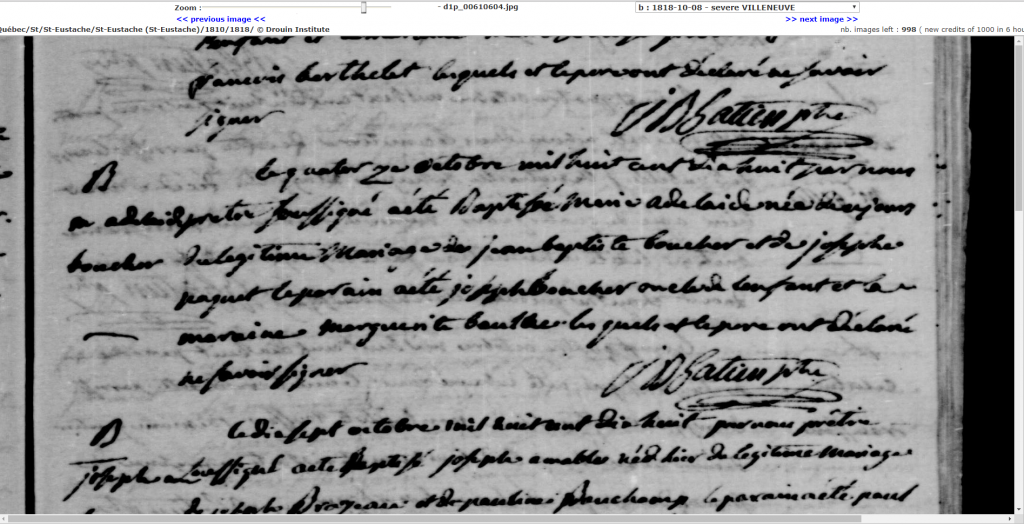 Zoom :
- d1p_00610604.jpg
b : 1818-10-08 - severe VILLENEUVE
<< previous image <<
>> next image >>
Québec/St/St-Eustache/St-Eustache (St-Eustache)/1810/1818/ © Drouin Institute
nb. images left : 998 ( new credits of 1000 in 6 hou
françois berthelet lesquels et le pere ont déclaré ne savoir
signer
JB Gatien ptre
B
le quatorze octobre mil huit cent dix huit par nous
m adelaid
pretre soussigné a été Baptisée Marie adelaide née
boucher
du legitime Mariage de jean baptiste boucher et de josephe
paquet le parain a été joseph Boucher oncle de lenfant et la
maraine marguerite lesquels et le pere ont déclaré
ne savoir signer
JB Gatien ptre
B
le dix sept octobre mil huit cent dix huit par nous prêtre
joseph
soussigné a été Baptisé joseph né d hier du legitime Mariage
de Brazeau et de pauline Beauchamp le parain a été paul